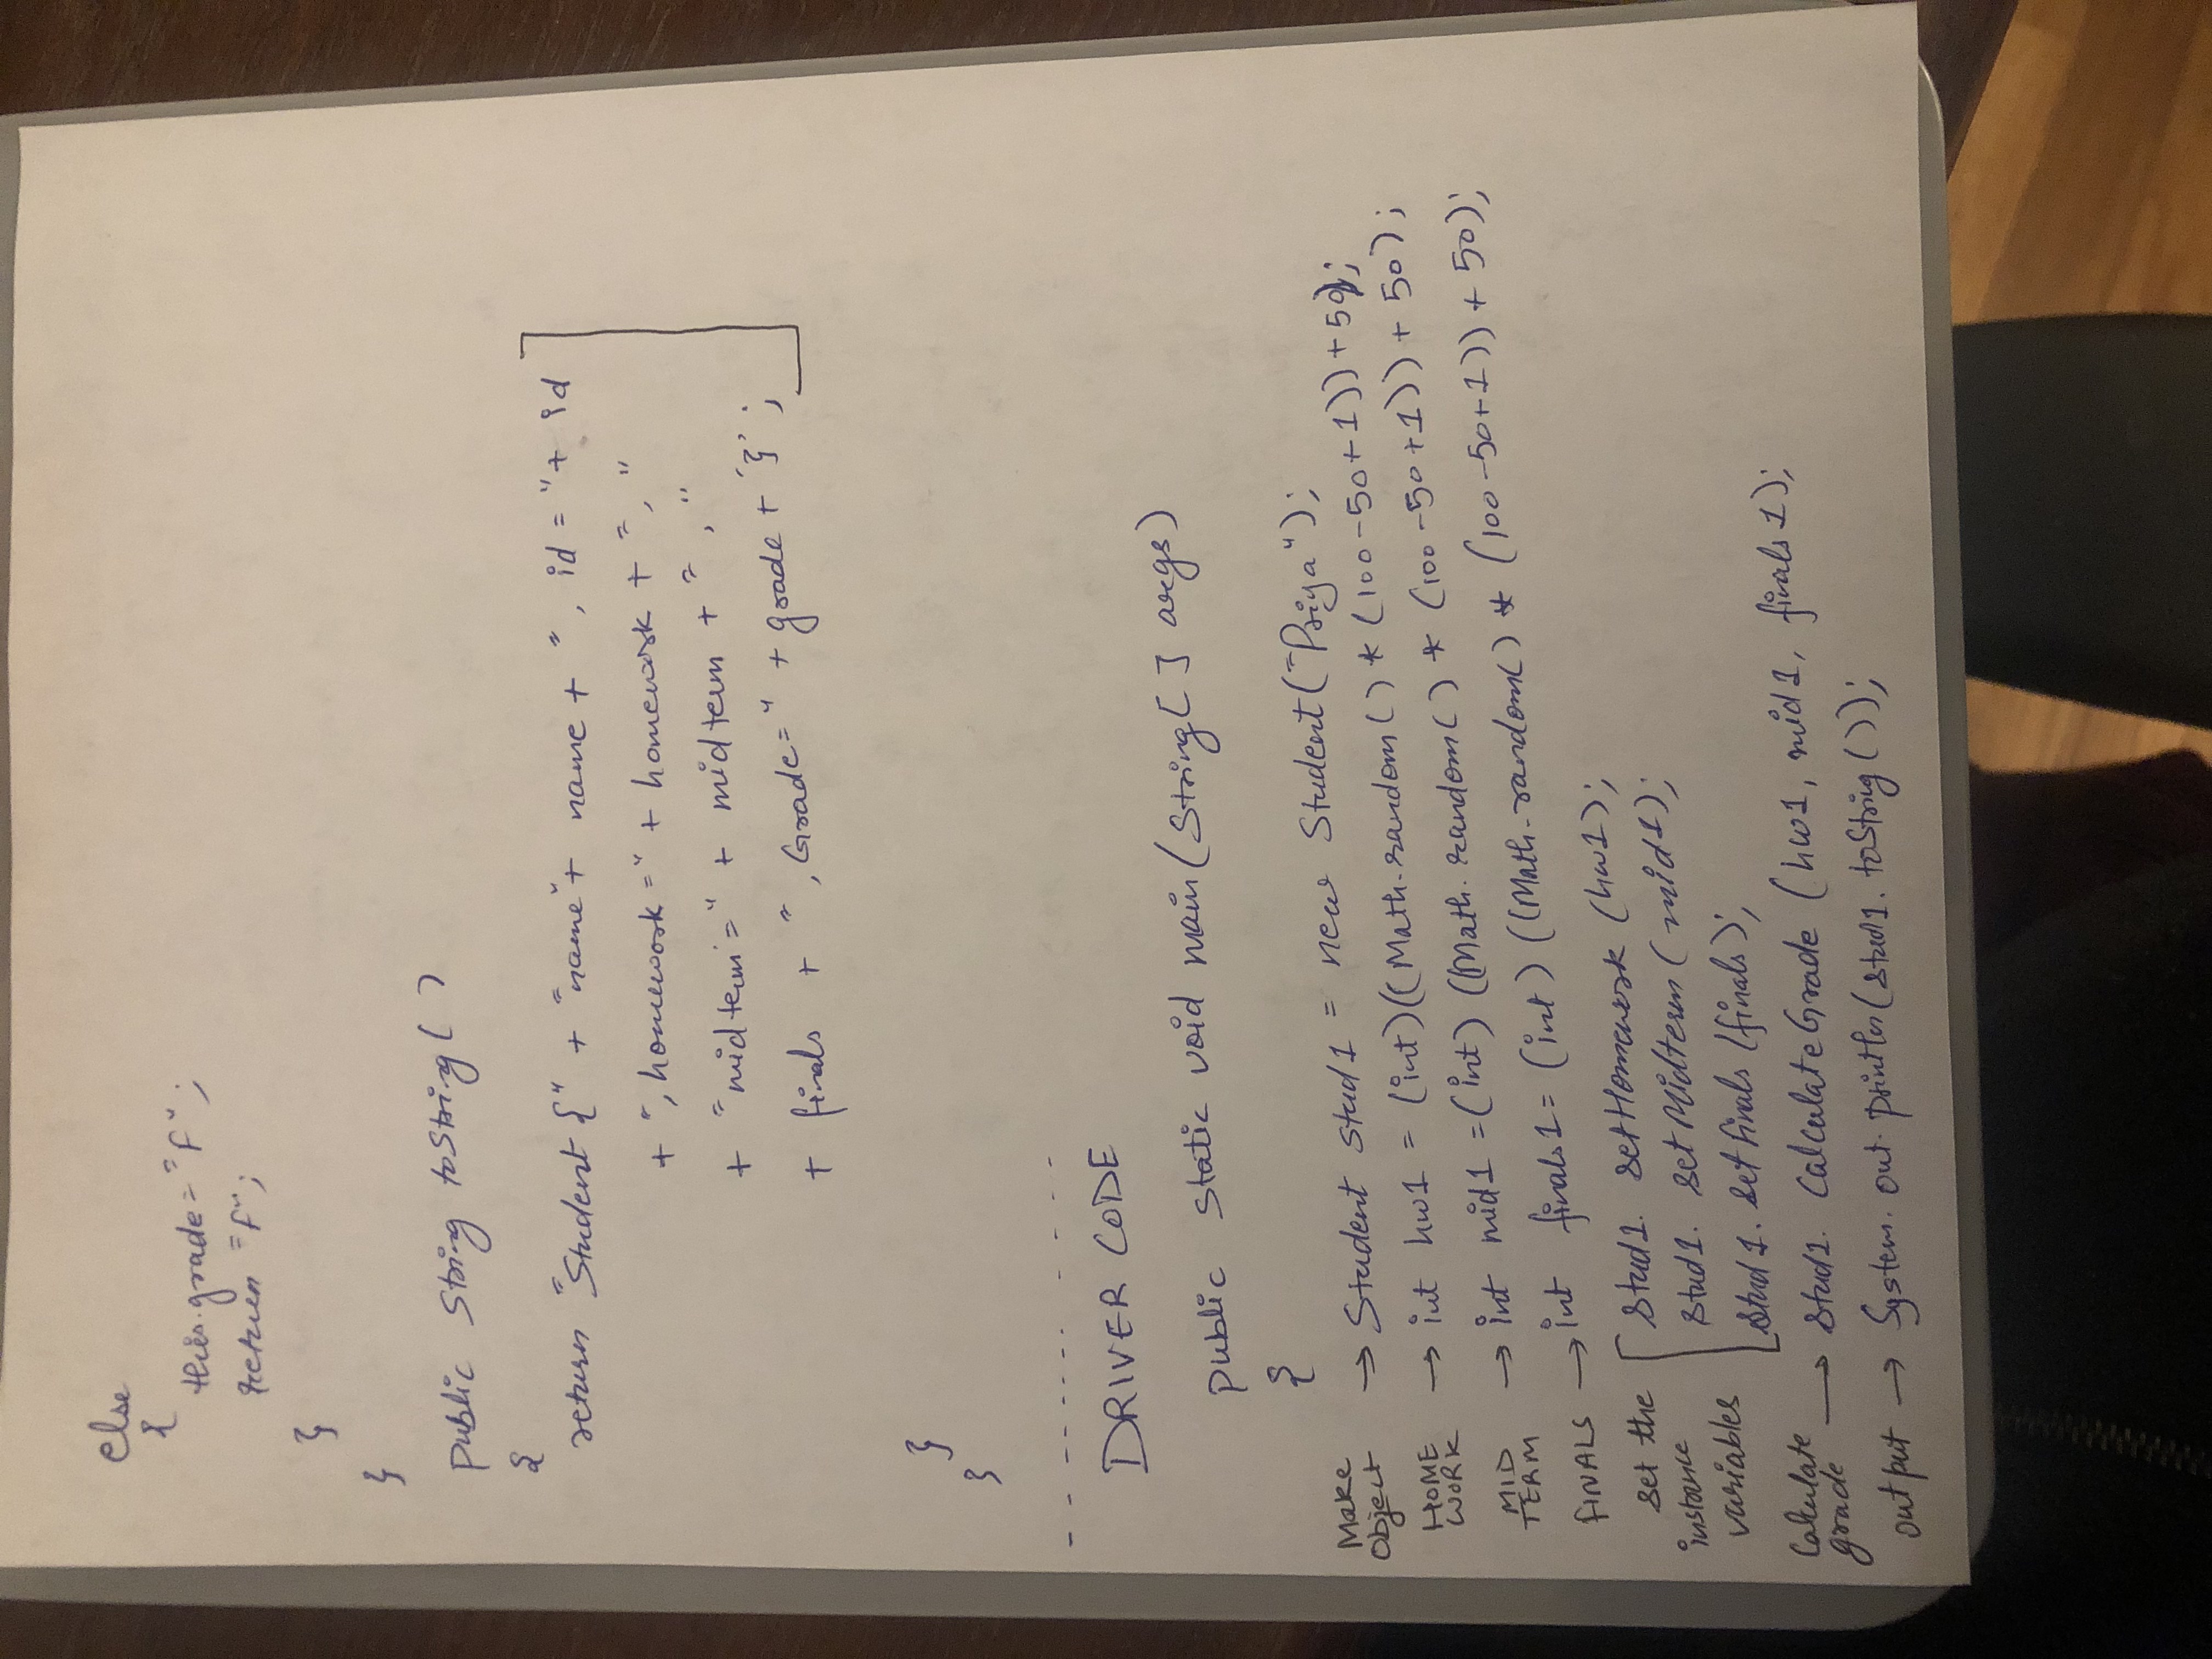 else
{
this.grade = "F";
return "F";
}
}
public String toString( )
{
return "Student {" + "name" + name + ", id = " + id
+ ", homework = " + homework + ", "
+ "midterm = " + midterm + ", "
+ finals + ", Grade = " + grade + '}' ;
}
}
- - - - - - - - - - - -
DRIVER CODE
public static void main(String[ ] args)
{
Make Object → Student stud1 = new Student("Priya");
HOME WORK → int hw1 = (int)((Math.random() * (100-50+1)) + 50);
MID TERM → int mid1 = (int) ((Math.random() * (100-50+1)) + 50);
FINALS → int finals1 = (int) ((Math.random() * (100-50+1)) + 50);
set the stud1. setHomework (hw1);
instance stud1. setMidterm (mid1);
variables stud1. setfinals (finals);
Calculate grade → stud1. CalculateGrade (hw1, mid1, finals1);
output → System.out.println(stud1.toString());